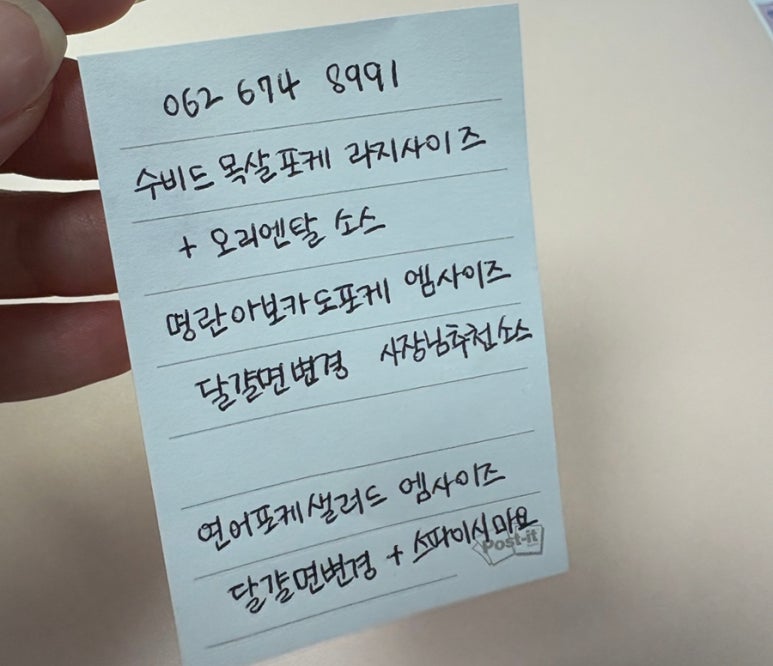 062 674 8991
수비드 목살포케 라지사이즈
+ 오리엔탈 소스
명란아보카도포케 엠사이즈
달걀면변경 사장님추천소스
연어포케샐러드 엠사이즈
달걀면변경 + 스파이시마요
Post-it